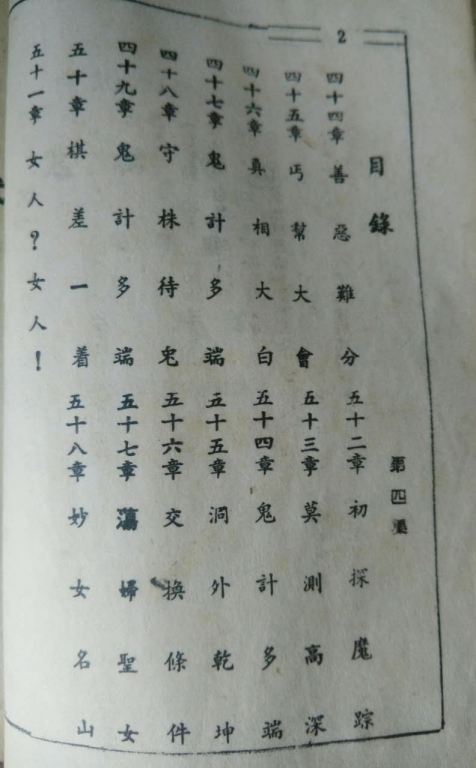 2
目錄
第四集
四十四章 善惡難分
四十五章 丐幫大會
四十六章 真相大白
四十七章 鬼計多端
四十八章 守株待兎
四十九章 鬼計多端
五十章 棋差一着
五十一章 女人？女人！
五十二章 初探魔踪
五十三章 莫測高深
五十四章 鬼計多端
五十五章 洞外乾坤
五十六章 交換條件
五十七章 蕩婦聖女
五十八章 妙女名山